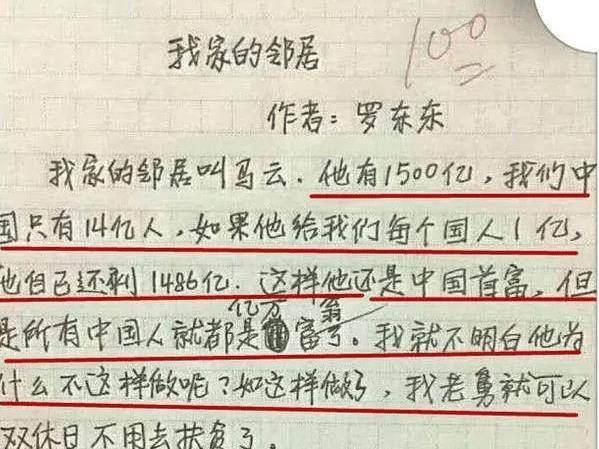 我家的邻居
100
作者：罗东东
我家的邻居叫马云.他有1500亿，我们中
国只有14亿人，如果他给我们每个国人1亿，
他自己还剩1486亿.这样他还是中国首富，但
是所有中国人就都是亿万富翁了。我就不明白他为
什么不这样做呢？如这样做了，我老舅就可以
双休日不用去扶贫了。